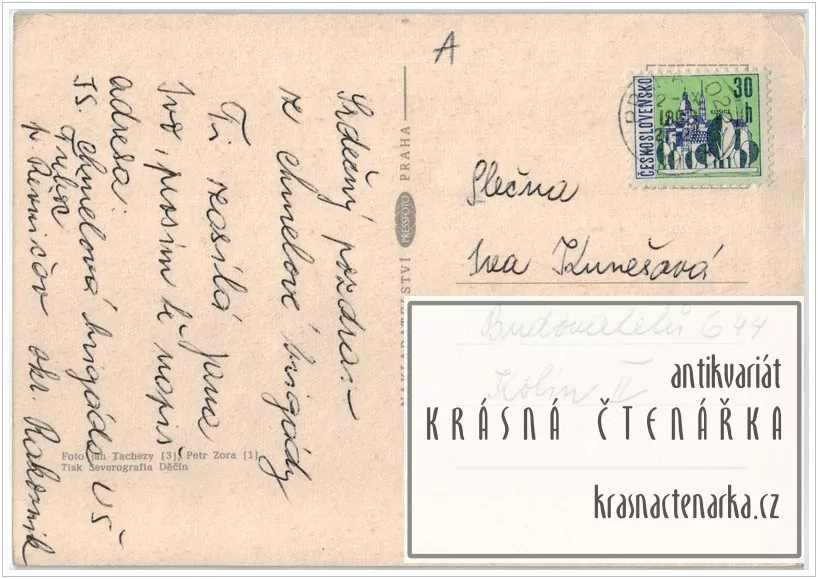 A
Srdečný pozdrav
z chmelové brigády
Ti zasílá Jana
Ivo, prosím tě napiš
adresa:
IS. chmelová brigáda VŠ
p. okr. Rakovník
NAKLADATELSTVÍ PRESSFOTO PRAHA
Foto Jan Tachezy (3), Petr Zora (1)
Tisk Severografia Děčín
ČESKOSLOVENSKO
30
h
Slečna
Iva Kunešová
Budovatelů 644
Kolín II
antikvariát
KRÁSNÁ ČTENÁŘKA
krasnactenarka.cz